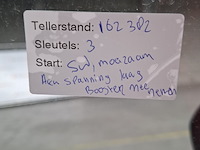 Tellerstand: 162 382
Sleutels: 3
Start: SW, moeizaam
Accu spanning laag
Booster mee nemen